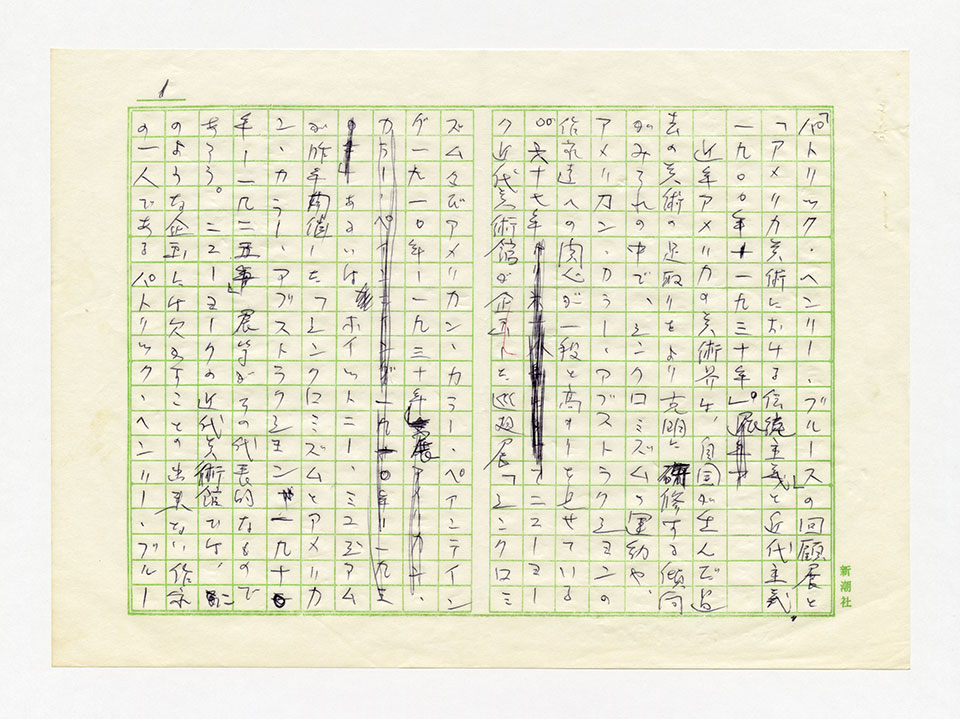 1
「パトリック・ヘンリー・ブルース」の回顧展と
「アメリカ美術における伝統主義と近代主義、
一九〇〇年ー一九三十年」展。
近年アメリカの美術界は、自国が生んだ過
去の美術の足取りをより克明に研修する傾向
がみられの中で、シンクロミズムの運動や、
アメリカン・カラー・アブストラクションの
作家達への関心が一段と高まりを見せている
六十七年 ニューヨー
ク近代美術館が企画した巡廻展「シンクロミ
ズム及びアメリカン・カラー・ペインティン
グ一九一〇年ー一九三十年」展
カラー・ペインティング一九一〇年ー一九
あるいはホイットニー・ミュジアム
が昨年開催した「シンクロミズムとアメリカ
ン・カラー・アブストラクション一九十
年ー一九二五」展等がその代表的なもので
あろう。ニューヨークの近代美術館では、
のような企画には欠かすことの出来ない作家
の一人であるパトリック・ヘンリー・ブルー
新潮社